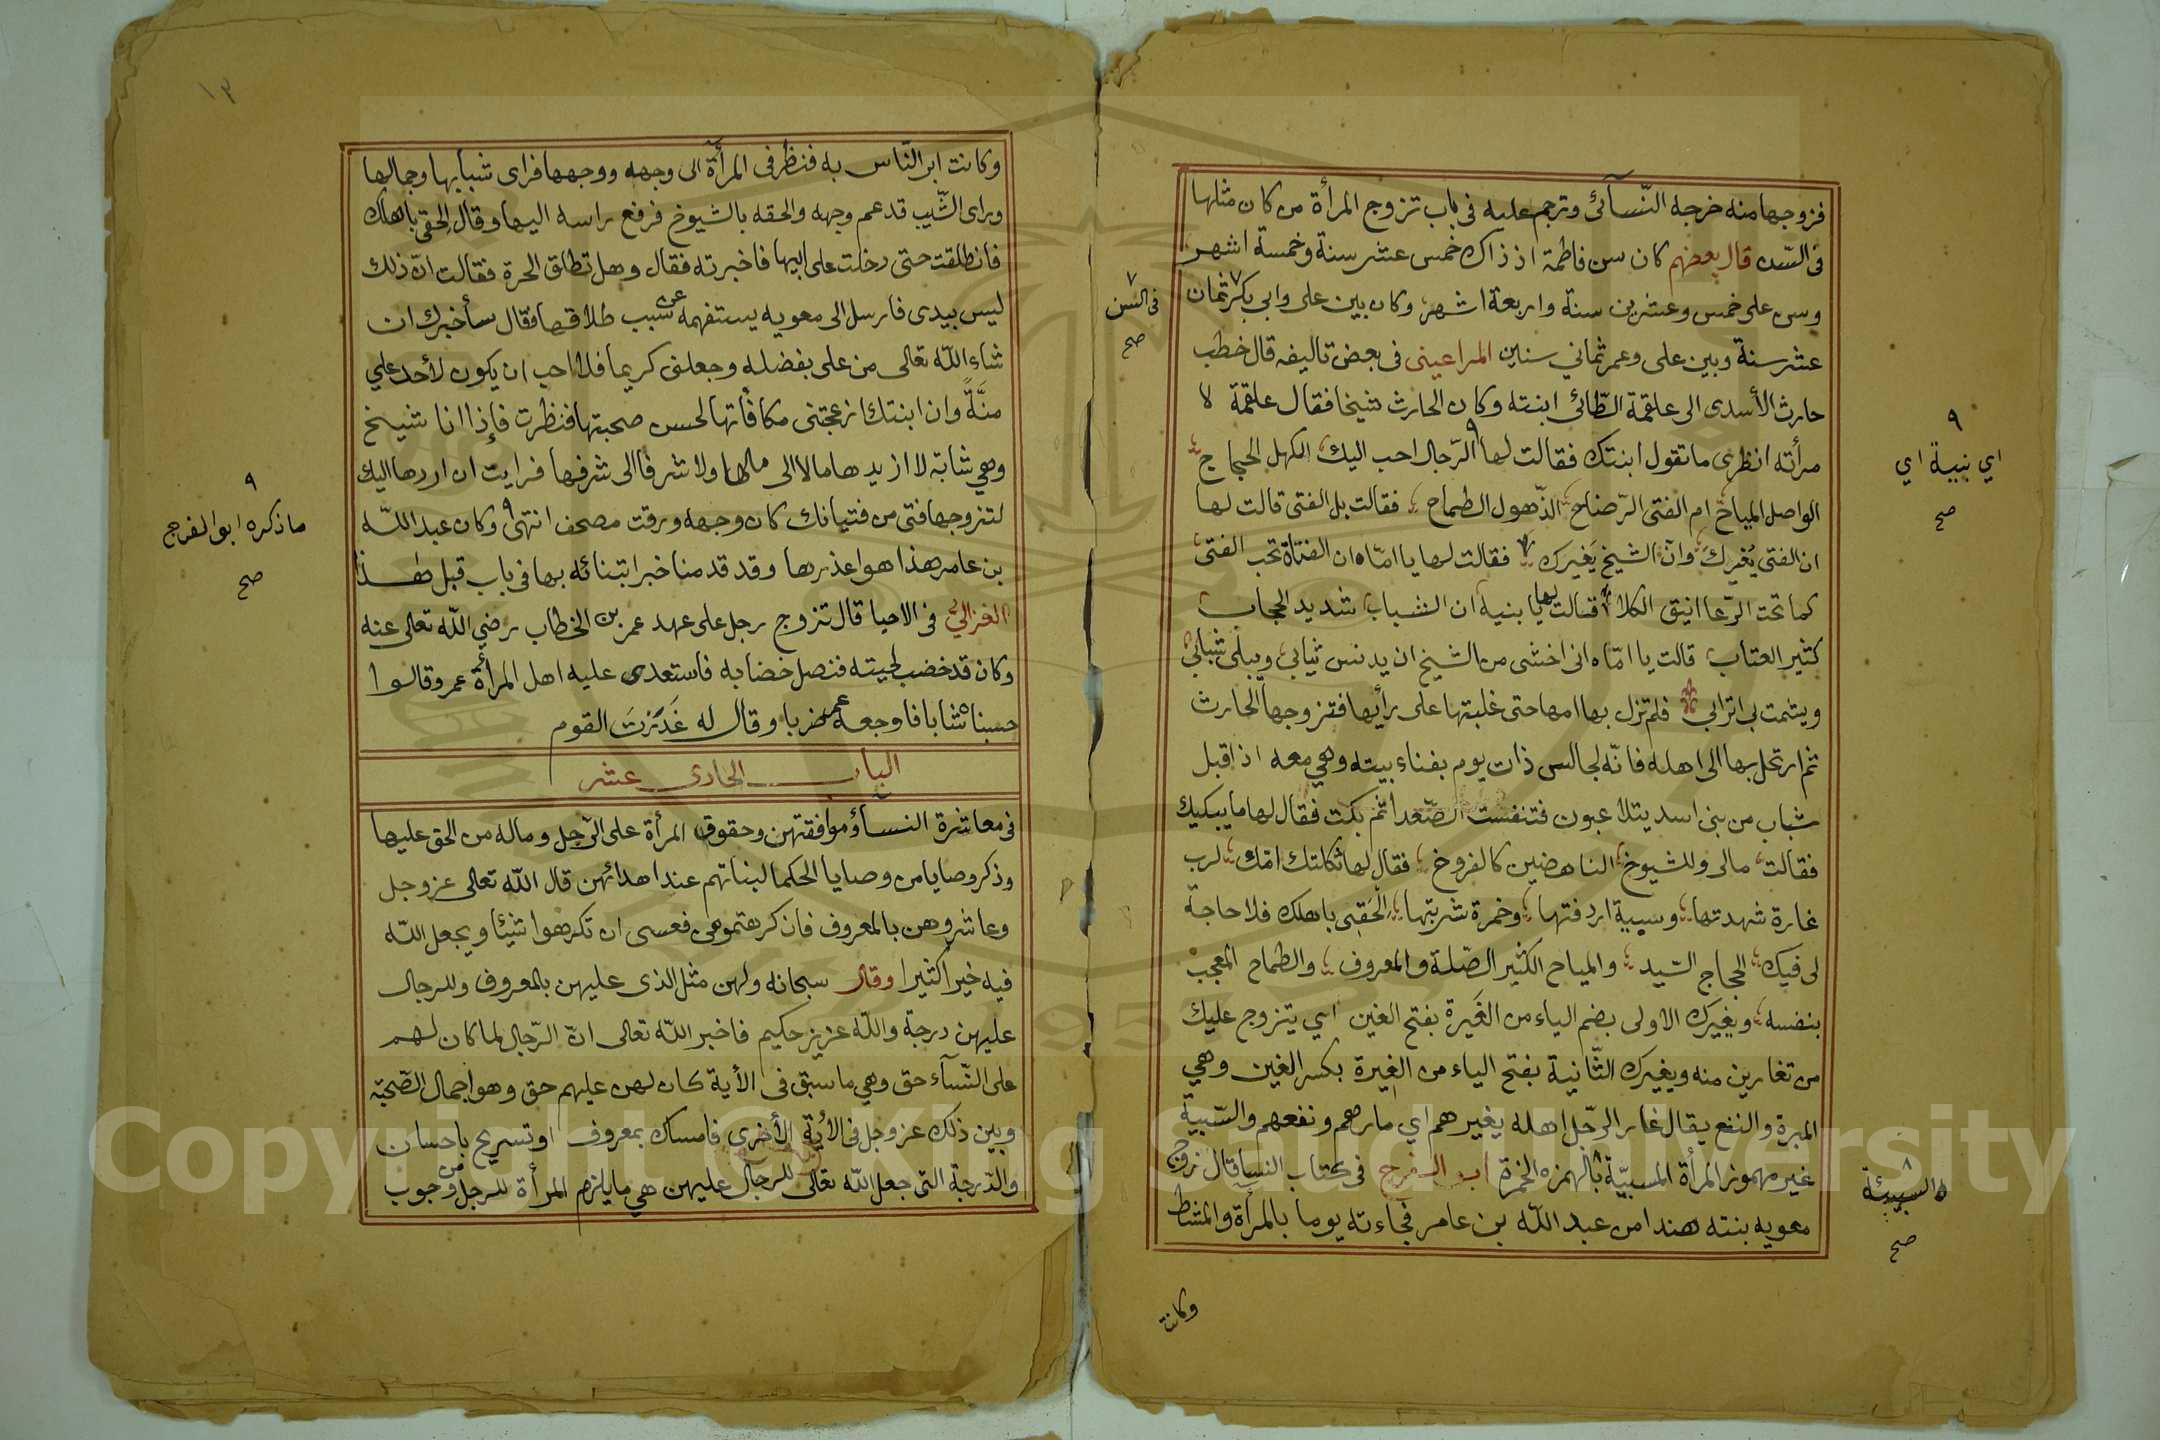 فزوجها منه خرجه النّسآئى وترجم عليه فى باب تزوج المرأة من كان مثلها
فى السّن قال بعضهم كان سن فاطمة اذ ذاك خمس عشر سنة وخمسة اشهر
وسن على خمس وعشرين سنة واربعة اشهر وكان بين على وابى بكر ٧ ثمان
عشر سنة وبين على وعمر ثماني سنين المراعينى فى بعض تاليفه قال خطب
حارث الأسدى الى علقمة الطّائى ابنته وكان الحارث شيخا فقال علقمة لا
مرأته انظرى ما تقول ابنتك فقالت لها ٩ الرّجال احب اليك الكهل الحجاج
الواصل المياح ام الفتى الرّضاح الذّهول الطماح فقالت بل الفتى قالت لها
ان الفتى يُغيرك وانّ الشيخ يَغيرك فقالت لها يا امّاه ان الفتاة تحب الفتى
كما تحت الرّعا انيق الكلاء قالت لها يا بنية ان الشباب شديد الحجاب
كثير العتاب قالت يا امّاه انى اخشى من الشيخ ان يدنس ثيابي ويبلى شبابي
ويشمت بى اترابي فلم تزل بها امها حتى غلبتها على رأيها فتزوجها الحارث
ثم ارتحل بها الى اهله فانّه لجالس ذات يوم بفناء بيته وهي معه اذ اقبل
شباب من بنى اسد يتلاعبون فتنفست الصّعدا ثم بكت فقال لها ما يبكيك
فقالت مالى وللشيوخ الناهضين كالفروخ فقال لها ثكلتك امّك لرب
غارة شهدتها وسبية اردفتها وخمرة شربتها اِلْحَقِى باهلك فلا حاجة
لى فيك الحجاج السّيد والمياح الكثير الصّلة والمعروف والطماح المعجب
بنفسه ويغيرك الاولى بضم الياء من الغَيرة بفتح الغين اى يتزوج عليك
من تغارين منه ويغيرك الثّانية بفتح الياء من الغِيرة بكسر الغين وهي
المبرة والنفع يقال غار الرّجل اهله يغيرهم اي مارهم ونفعهم والسّبية
غير مهموز المرأة المسبيّة ٨ بالهمزه الخمرة ابو الفرج فى كتاب النسا قال زوج
معويه بنته هندا من عبد اللّه بن عامر فجاءته يوما بالمرأة والمشط
وكانت
٧
فى السن
صح
٩
اي بنية اي
صح
٨
والسبيئة
صح
١٣
وكانت ابر النّاس به فنظر فى المرأة الى وجهه ووجهها فراى شبابها وجمالها
وراى الشّيب قد عم وجهه والحقه بالشيوخ فرفع راسه اليها وقال الحقى باهلك
فانطلقت حتى دخلت على ابيها فاخبرته فقال وهل تطلق الحرة فقالت انّ ذلك
ليس بيدى فارسل الى معويه يستفهمه عن سبب طلاقها فقال سأخبرك ان
شاء اللّه تعالى من على بفضله وجعلنى كريما فلا احب ان يكون لأحد علي
منَّةً وان ابنتك ازعجتنى مكافأتها لحسن صحبتها فنظرت فإذا انا شيخ
وهي شابة لا ازيدها مالا الى مالها ولا شرفا الى شرفها فرايت ان اردها اليك
لتزوجها فتى من فتيانك كان وجهه ورقت مصحف انتهى ٩ وكان عبد اللّه
بن عامر هذا هو اعذرها وقد قدمنا خبر ابتنائه بها فى باب قبل هذا
الغزالي فى الاحيا قال تزوج رجل على عهد عمر بن الخطاب رضي اللّه تعالى عنه
وكان قد خضب لحيته فنصل خضابه فاستعدى عليه اهل المرأة عمر وقالوا
حسبناه شابا فاوجعه عمر ضربا وقال له غَدَرْتَ القوم
الباب الحادى عشر
فى معاشرة النسآ وموافقتهن وحقوق المرأة على الرّجل وماله من الحق عليها
وذكر وصايا من وصايا الحكما لبناتهم عند اهدائهن قال اللّه تعالى عز وجل
وعاشروهن بالمعروف فان كرهتموهن فعسى ان تكرهوا شيئا ويجعل اللّه
فيه خيرا كثيرا وقال سبحانه ولهن مثل الذى عليهن بالمعروف وللرجال
عليهن درجة واللّه عزيز حكيم فاخبر اللّه تعالى انّ الرّجال لما كان لهم
على النّسآء حق وهي ما سبق فى الأية كان لهن عليهم حق وهو اجمال الصّحبة
وبين ذلك عز وجل فى الأية الأخرى فامساك بمعروف او تسريح باحسان
والدّرجة التى جعل اللّه تعالى للرجال عليهن هي ما يلزم المرأة للرجل من وجوب
٩
ما ذكره ابو الفرج
صح
Copyright © King Saud University